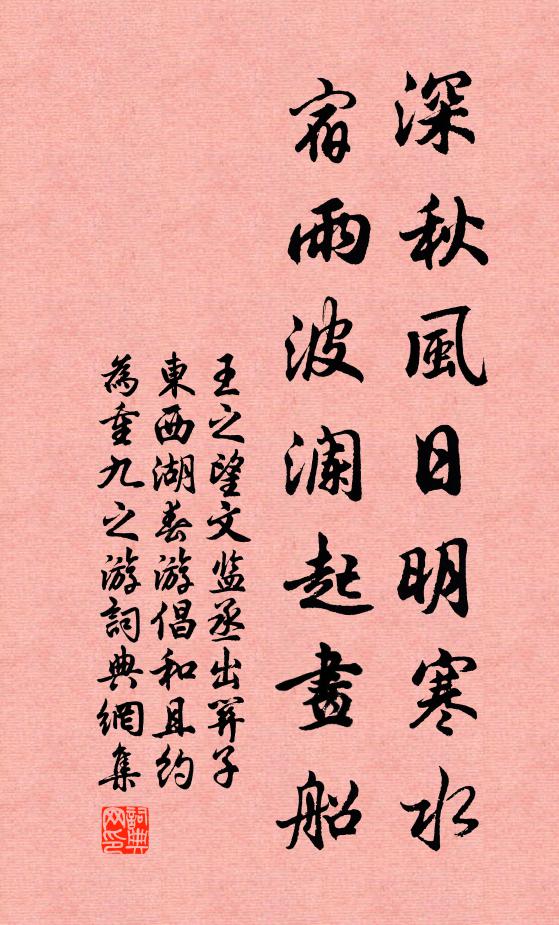 深秋風日明寒水
宿雨波瀾起畫船
王之望文监丞出羿子
東西湖春游倡和且約
為重九之游詞典網集
詞典网印